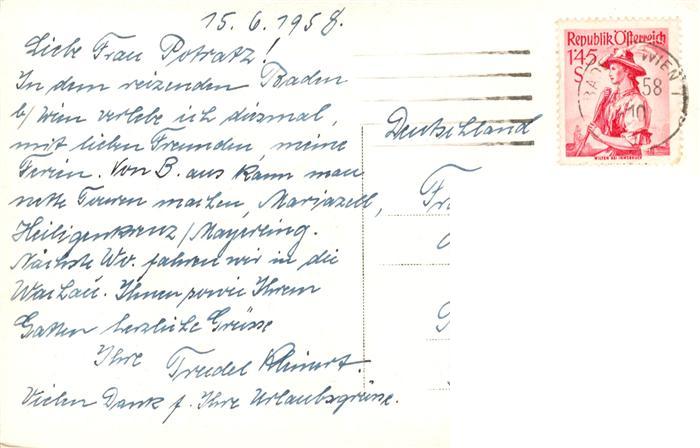 15.6.1958.
Liebe Frau Potratz!
In dem reizenden Baden
b/Wien verlebe ich diesmal,
mit lieben Freunden, meine
Ferien. Von B. aus kann man
nette Touren machen, Mariazell,
Heiligenkreuz/Mayerling.
Nächste Wo. fahren wir in die
Wachau. Ihnen sowie Ihrem
Gatten herzliche Grüsse
Ihre Friedel Kleinert.
Vielen Dank f. Ihre Urlaubsgrüsse.
Deutschland
Fr
Republik Österreich
1'45
S
WILTEN BEI INNSBRUCK
WIEN
58
10